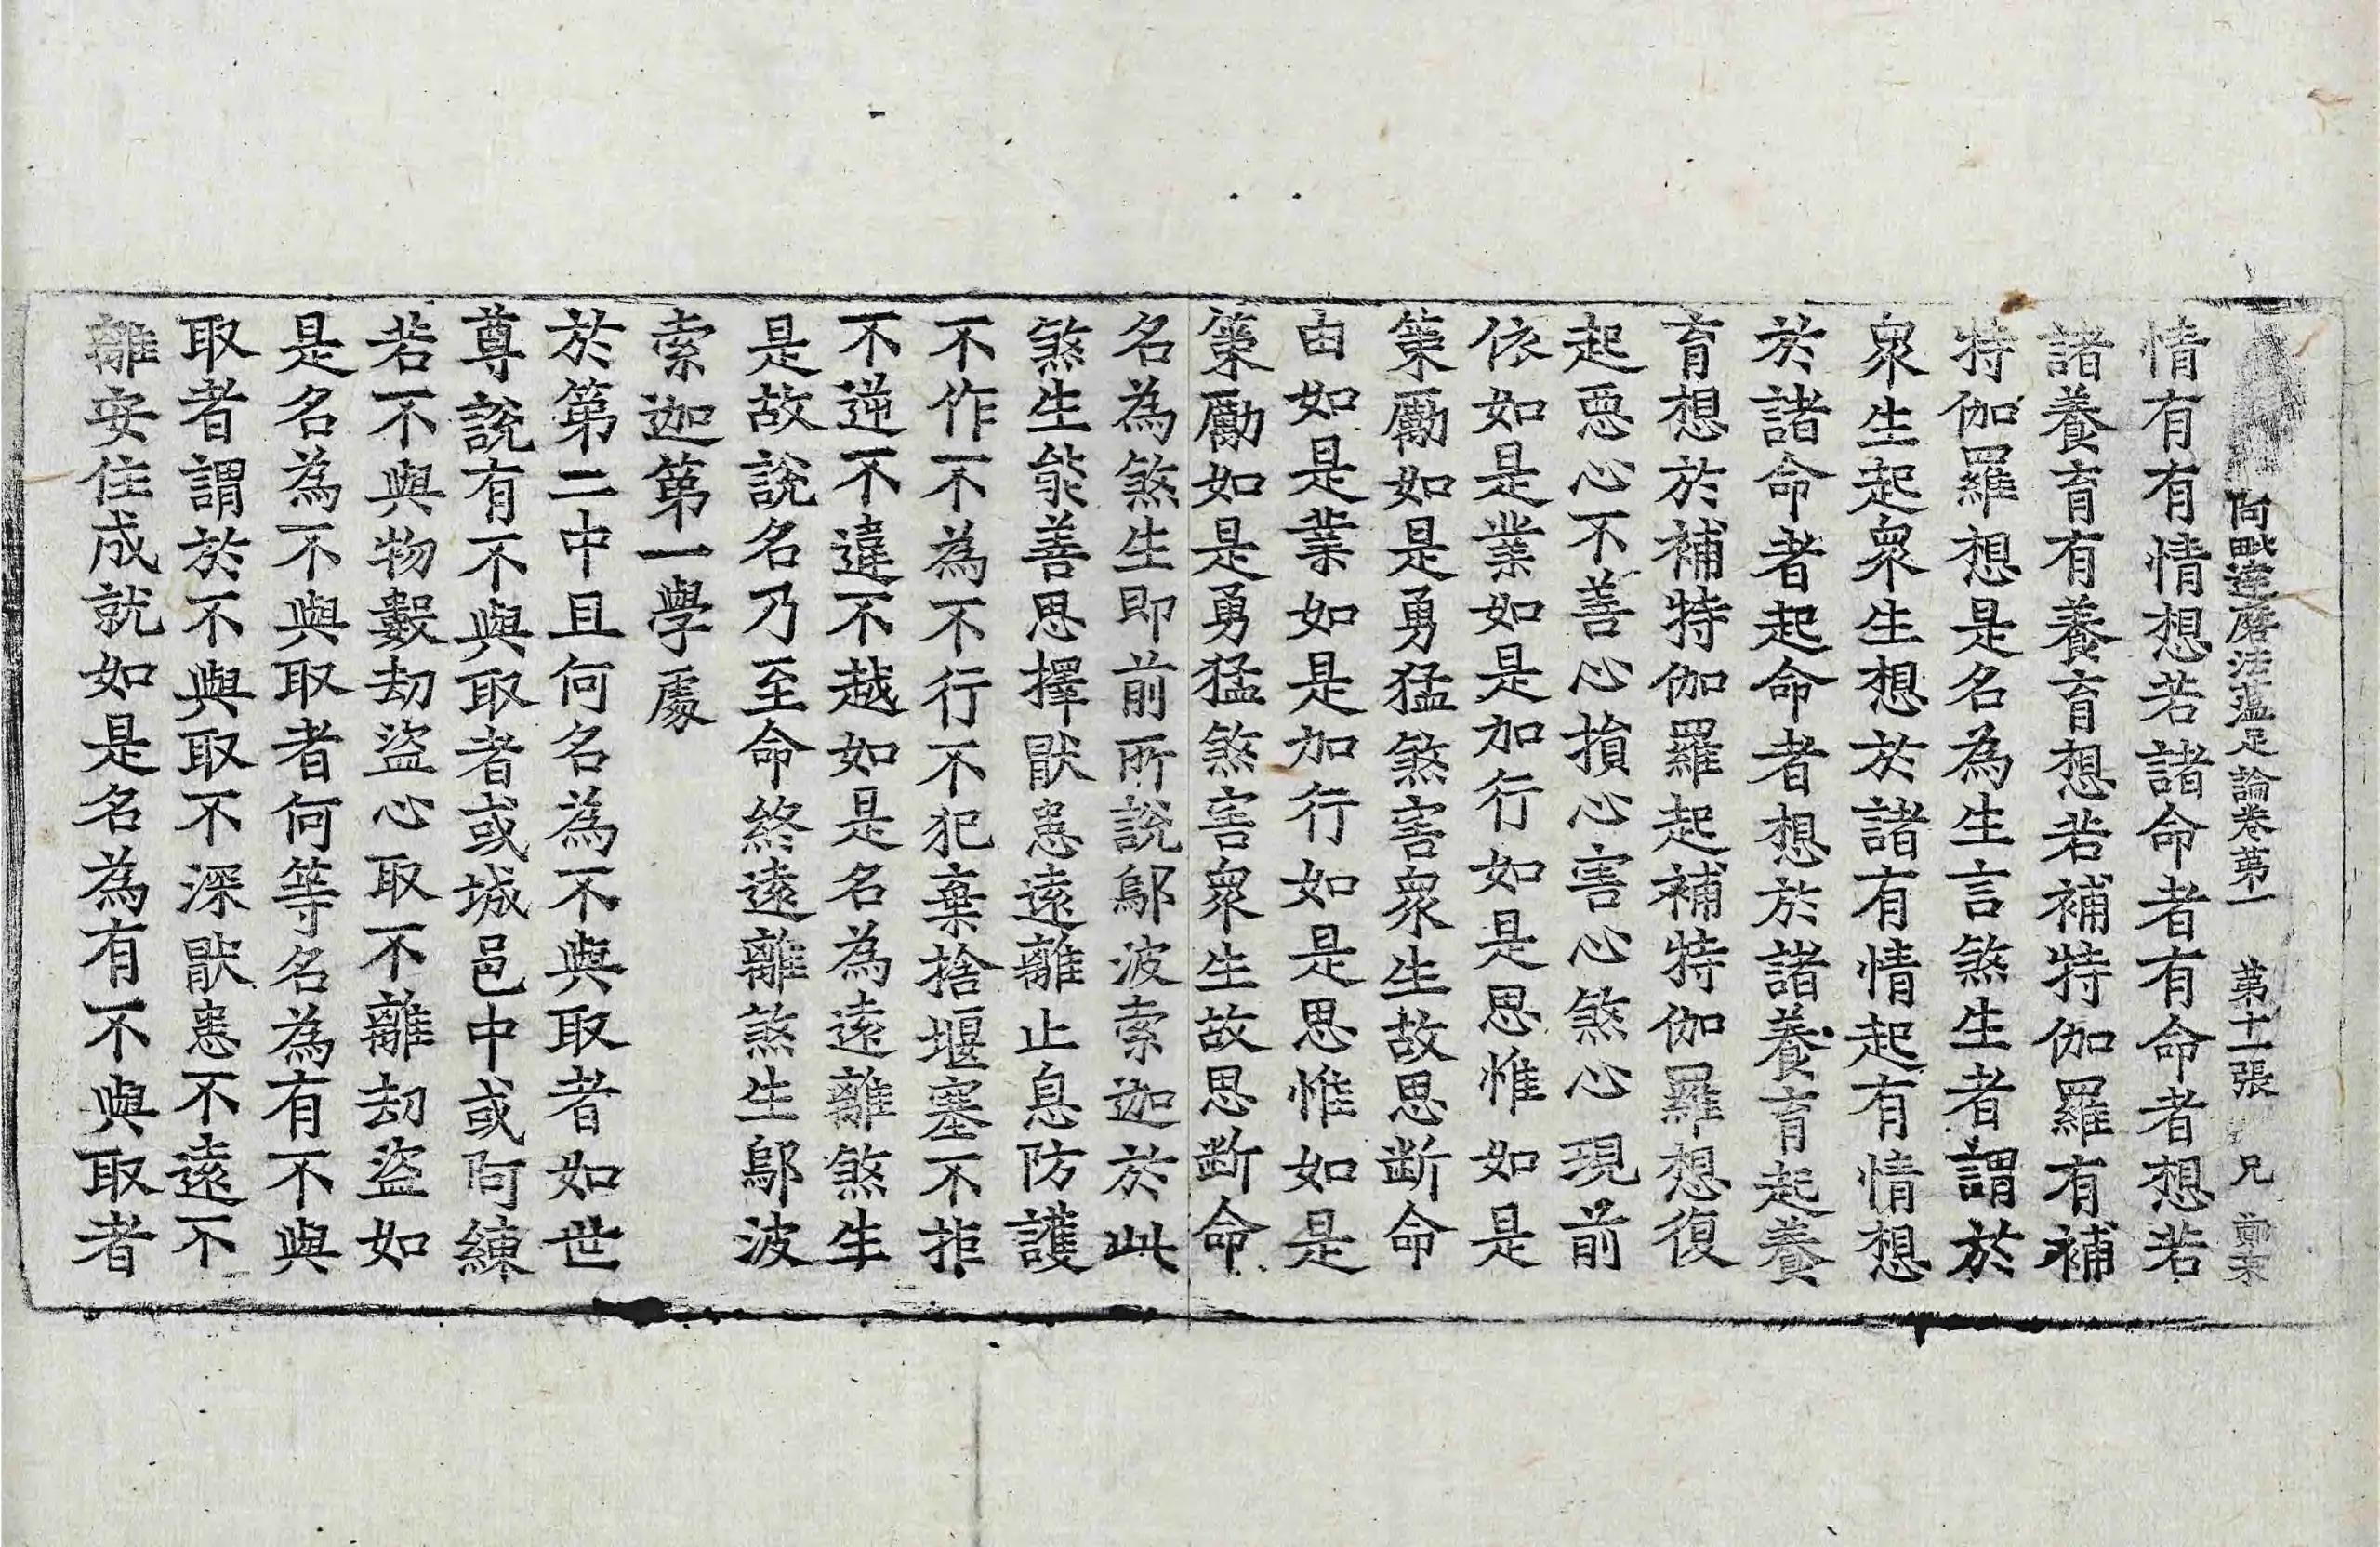 阿毗達磨法蘊足論卷第一 第十一張 兄
情有有情想若諸命者有命者想若
諸養育有養育想若補特伽羅有補
特伽羅想是名為生言煞生者謂於
衆生起衆生想於諸有情起有情想
於諸命者起命者想於諸養育起養
育想於補特伽羅起補特伽羅想復
起惡心不善心損心害心煞心現前
依如是業如是加行如是思惟如是
策勵如是勇猛煞害衆生故思断命
由如是業如是加行如是思惟如是
策勵如是勇猛煞害衆生故思断命
名為煞生即前所說鄔波索迦於此
煞生能善思擇猒患遠離止息防護
不作不為不行不犯棄捨堰塞不拒
不逆不違不越如是名為遠離煞生
是故說名乃至命終遠離煞生鄔波
索迦第一學處
於第二中且何名為不與取者如世
尊說有不與取者或城邑中或阿練
若不與物數劫盜心取不離劫盜如
是名為不與取者何等名為有不與
取者謂於不與取不深猒患不遠不
離安住成就如是名為有不與取者